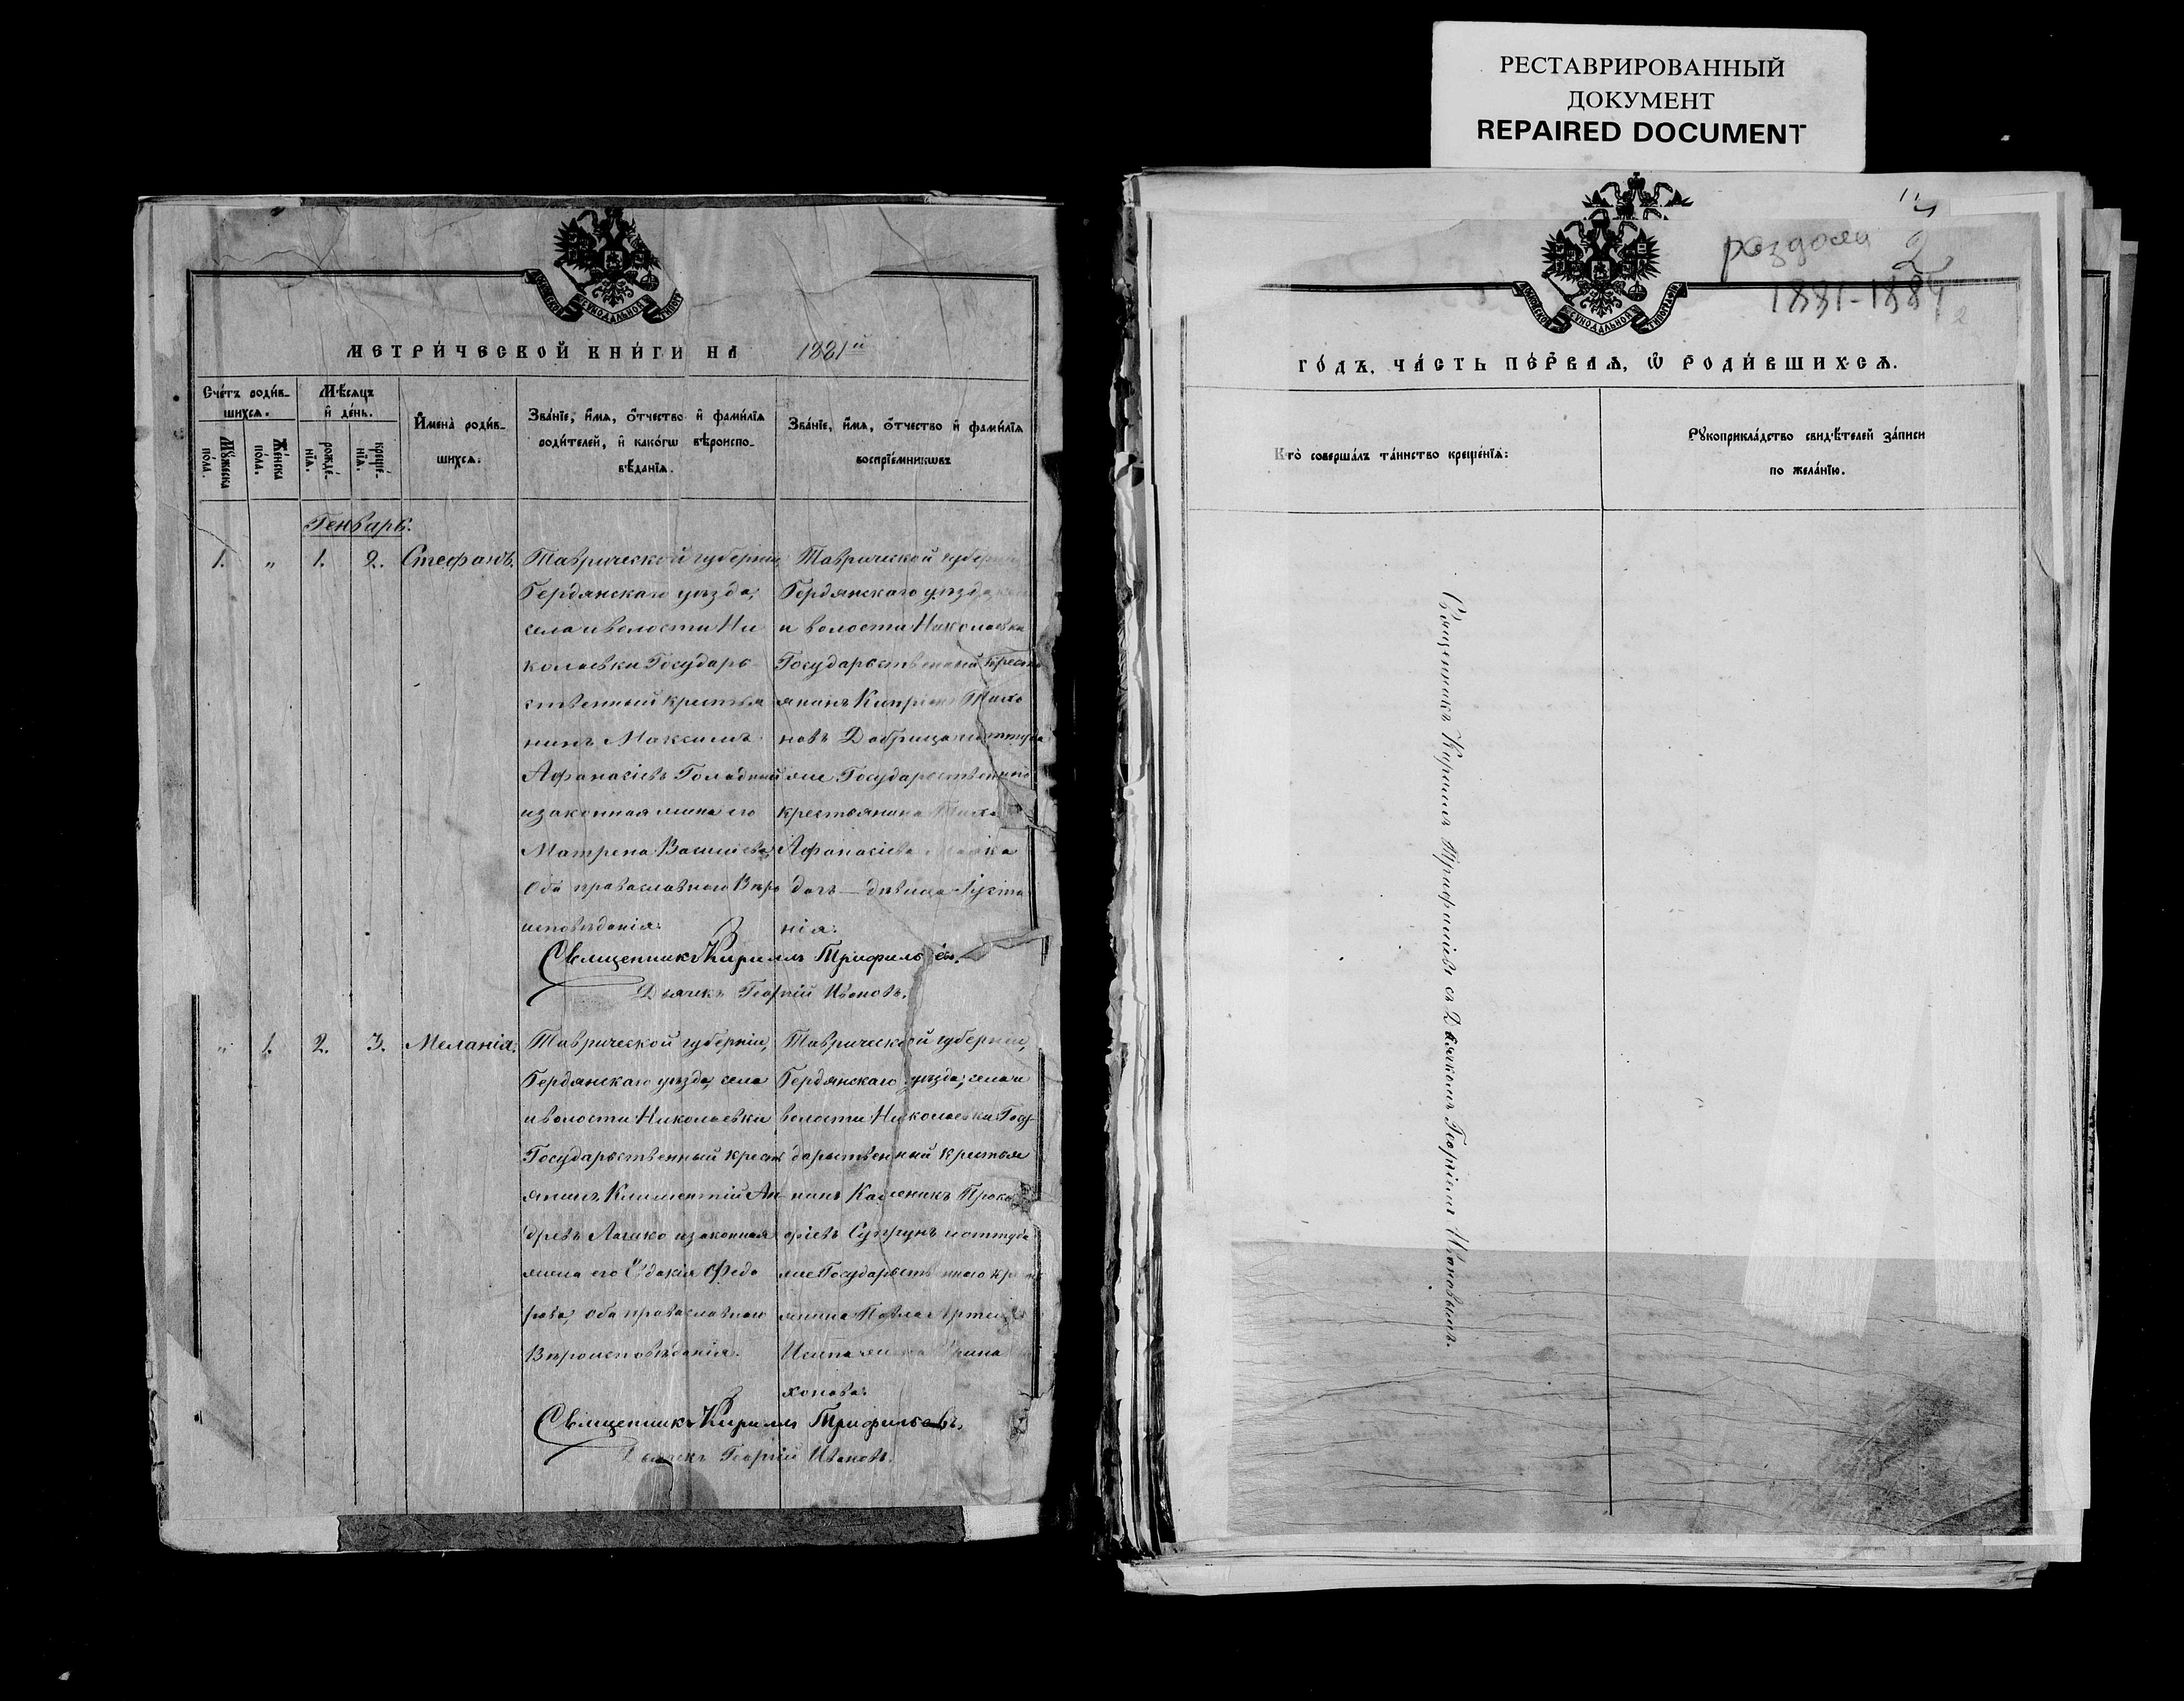 РЕСТАВРИРОВАННЫЙ
ДОКУМЕНТ
REPAIRED DOCUMENT
МОСКОВСКОЙ СѴНОДАЛЬНОЙ ТИПОГРАФІИ
МЕТРИ́ЧЕСКОЙ КНИ́ГИ НА 1881й
Сче́тъ роди́в-
шихсѧ.
Мꙋ́жеска
по́ла.
Же́нска
пола.
Мѣ́сѧцъ
и҆ де́нь.
рожде́-
нїѧ.
креще́-
нїѧ.
И҆мена̀ роди́в-
шихсѧ:
Зва́нїе, и҆́мѧ, ѻ҆́тчество и҆ фами́лїѧ
роди́телей, и҆ како́гѡ вѣроиспо-
вѣ́данїѧ.
Зва́нїе, и҆́мѧ, ѻ҆́тчество и҆ фами́лїѧ
воспрїе́мникѡвъ
Генварь.
1. „ 1. 2. Стефанъ.
Таврической губерніи,
Бердянскаго уѣзда,
села и волости Ни
колаевки Государь-
ственный крестья
нинъ Максимъ
Афанасіевъ Голодный
и законная жена его
Матрена Васильева,
Оба православнаго Вѣро
исповѣданія:
Таврической губерніи
Бердянскаго уѣзда
и волости Николаевки
Государьственный крест
янинъ Кипріанъ Тихо
новъ и тогда
же Государственнаго
крестьянина
Афанасіева
дочь — дѣвица Іуста
нія:
Священникъ Кириллъ Трифильевъ.
Дьячекъ Георгій Ивановъ.
„ 1. 2. 3. Меланія.
Таврической губерніи,
Бердянскаго уѣзда, села
и волости Николаевки
Государьственный крест
янинъ Климентій Ан
древъ и законная
жена его Евдакія Федо
рова, Оба православнаго
Вѣроисповѣданія.
Таврической губерніи,
Бердянскаго уѣзда, села и
волости Николаевки Госу-
дарьственный крестья
нинъ Каленикъ Проко
фіевъ Супрунъ
же Государьственнаго крест
янина Павла
жена
хонова:
Священникъ Кириллъ Трифильевъ.
Дьячекъ Георгій Ивановъ.
2
1881-1884
МОСКОВСКОЙ СѴНОДАЛЬНОЙ ТИПОГРАФІИ
ГО́ДЪ, ЧА́СТЬ ПЕ́РВАѦ, Ѡ҆ РОДИ́ВШИХСѦ.
Кто̀ соверша́лъ та́инство креще́нїѧ:
Рꙋкоприкла́дство свидѣ́телей за́писи
по жела́нїю.
Священникъ Кириллъ Трифиліевъ съ Дьячкомъ Георгіемъ Ивановымъ.